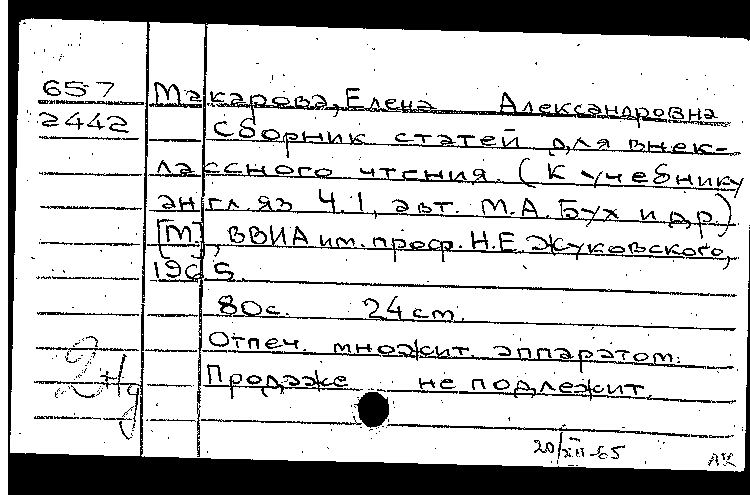 657 Макарова, Елена Александровна
2442 Сборник статей для внек-
лассного чтения. (К учебнику
англ. яз Ч.1, авт. М.А. Бух и др.)
[М], ВВИА им. проф. Н.Е. Жуковского,
1965.
80с. 24см.
Отпеч. множит. аппаратом.
Продаже не подлежит.
20/XII-65